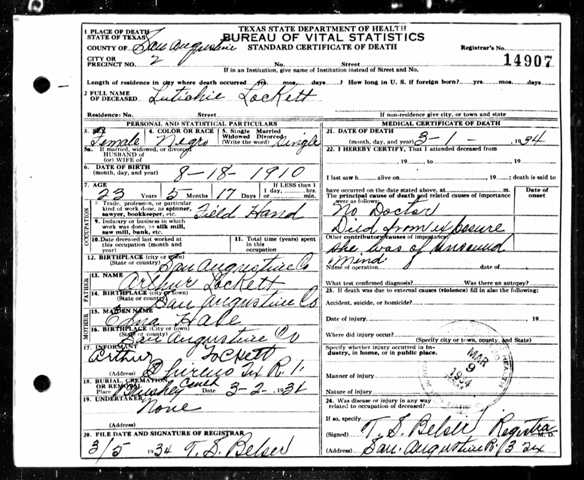 TEXAS STATE DEPARTMENT OF HEALTH
BUREAU OF VITAL STATISTICS
STANDARD CERTIFICATE OF DEATH
1 PLACE OF DEATH
STATE OF TEXAS
COUNTY OF San Augustine
Registrar's No.
CITY OR
PRECINCT NO. 2 No. Street 14907
If in an Institution, give name of Institution instead of Street and No.
Length of residence in city where death occurred yrs. mos. days. How long in U. S. if foreign born? yrs. mos. days
2 FULL NAME
OF DECEASED Lockett
Residence: No. Street If non-residence give city, or town and state
PERSONAL AND STATISTICAL PARTICULARS
3. SEX Female
4. COLOR OR RACE Negro
5. Single Married
Widowed Divorced
(Write the word) Single
5a. If married, widowed, or divorced
HUSBAND of
(or) WIFE of
6. DATE OF BIRTH
(month, day, year) 8-18-1910
7. AGE
23 Years 5 Months 17 Days
IF LESS than 1
day, hrs.
min.
OCCUPATION
8. Trade, profession, or particular
kind of work done, as spinner,
sawyer, bookkeeper, etc. Field Hand
9. Industry or business in which
work was done, as silk mill,
saw mill, bank, etc.
10. Date deceased last worked at
this occupation (month and
year)
11. Total time (years)
spent in this
occupation
12. BIRTHPLACE (City or town)
(State or country) San Augustine Co
FATHER
13. NAME Arthur Lockett
14. BIRTHPLACE (City or town)
(State or country) San Augustine Co
MOTHER
15. MAIDEN NAME Edna Hale
16. BIRTHPLACE (City or town)
(State or country) San Augustine Co
17. INFORMANT Arthur Lockett
(Address) Chireno Tex R. 1.
18. BURIAL, CREMATION
OR REMOVAL
Place Cem Date 3-2-1934
19. UNDERTAKER None
(Address)
20. FILE DATE AND SIGNATURE OF REGISTRAR
3/5 1934 T. S. Belser
MEDICAL CERTIFICATE OF DEATH
21. DATE OF DEATH
(month, day, year) 3-1-1934
22. I HEREBY CERTIFY, That I attended deceased from
, 19 to , 19
I last saw h alive on , 19 ; death is said to
have occurred on the date stated above, at m.
The principal cause of death and related causes of importance
were as follows:
Date of
onset
No Doctor
Died from exposure
Other contributory causes of importance:
she was of unsound
mind
Name of operation date of
What test confirmed diagnosis? Was there an autopsy?
23. If death was due to external causes (violence) fill in also the following:
Accident, suicide, or homicide?
Date of injury , 19
Where did injury occur?
(Specify city or town, county, and state)
Specify whether injury occurred in
industry, in home, or in public place.
MAR
9
1934
Manner of injury
Nature of injury
24. Was disease or injury in any way
related to occupation of deceased?
If so, specify
(Signed) T. S. Belser Registrar M. D.
(Address) San Augustine R. 3 Tex